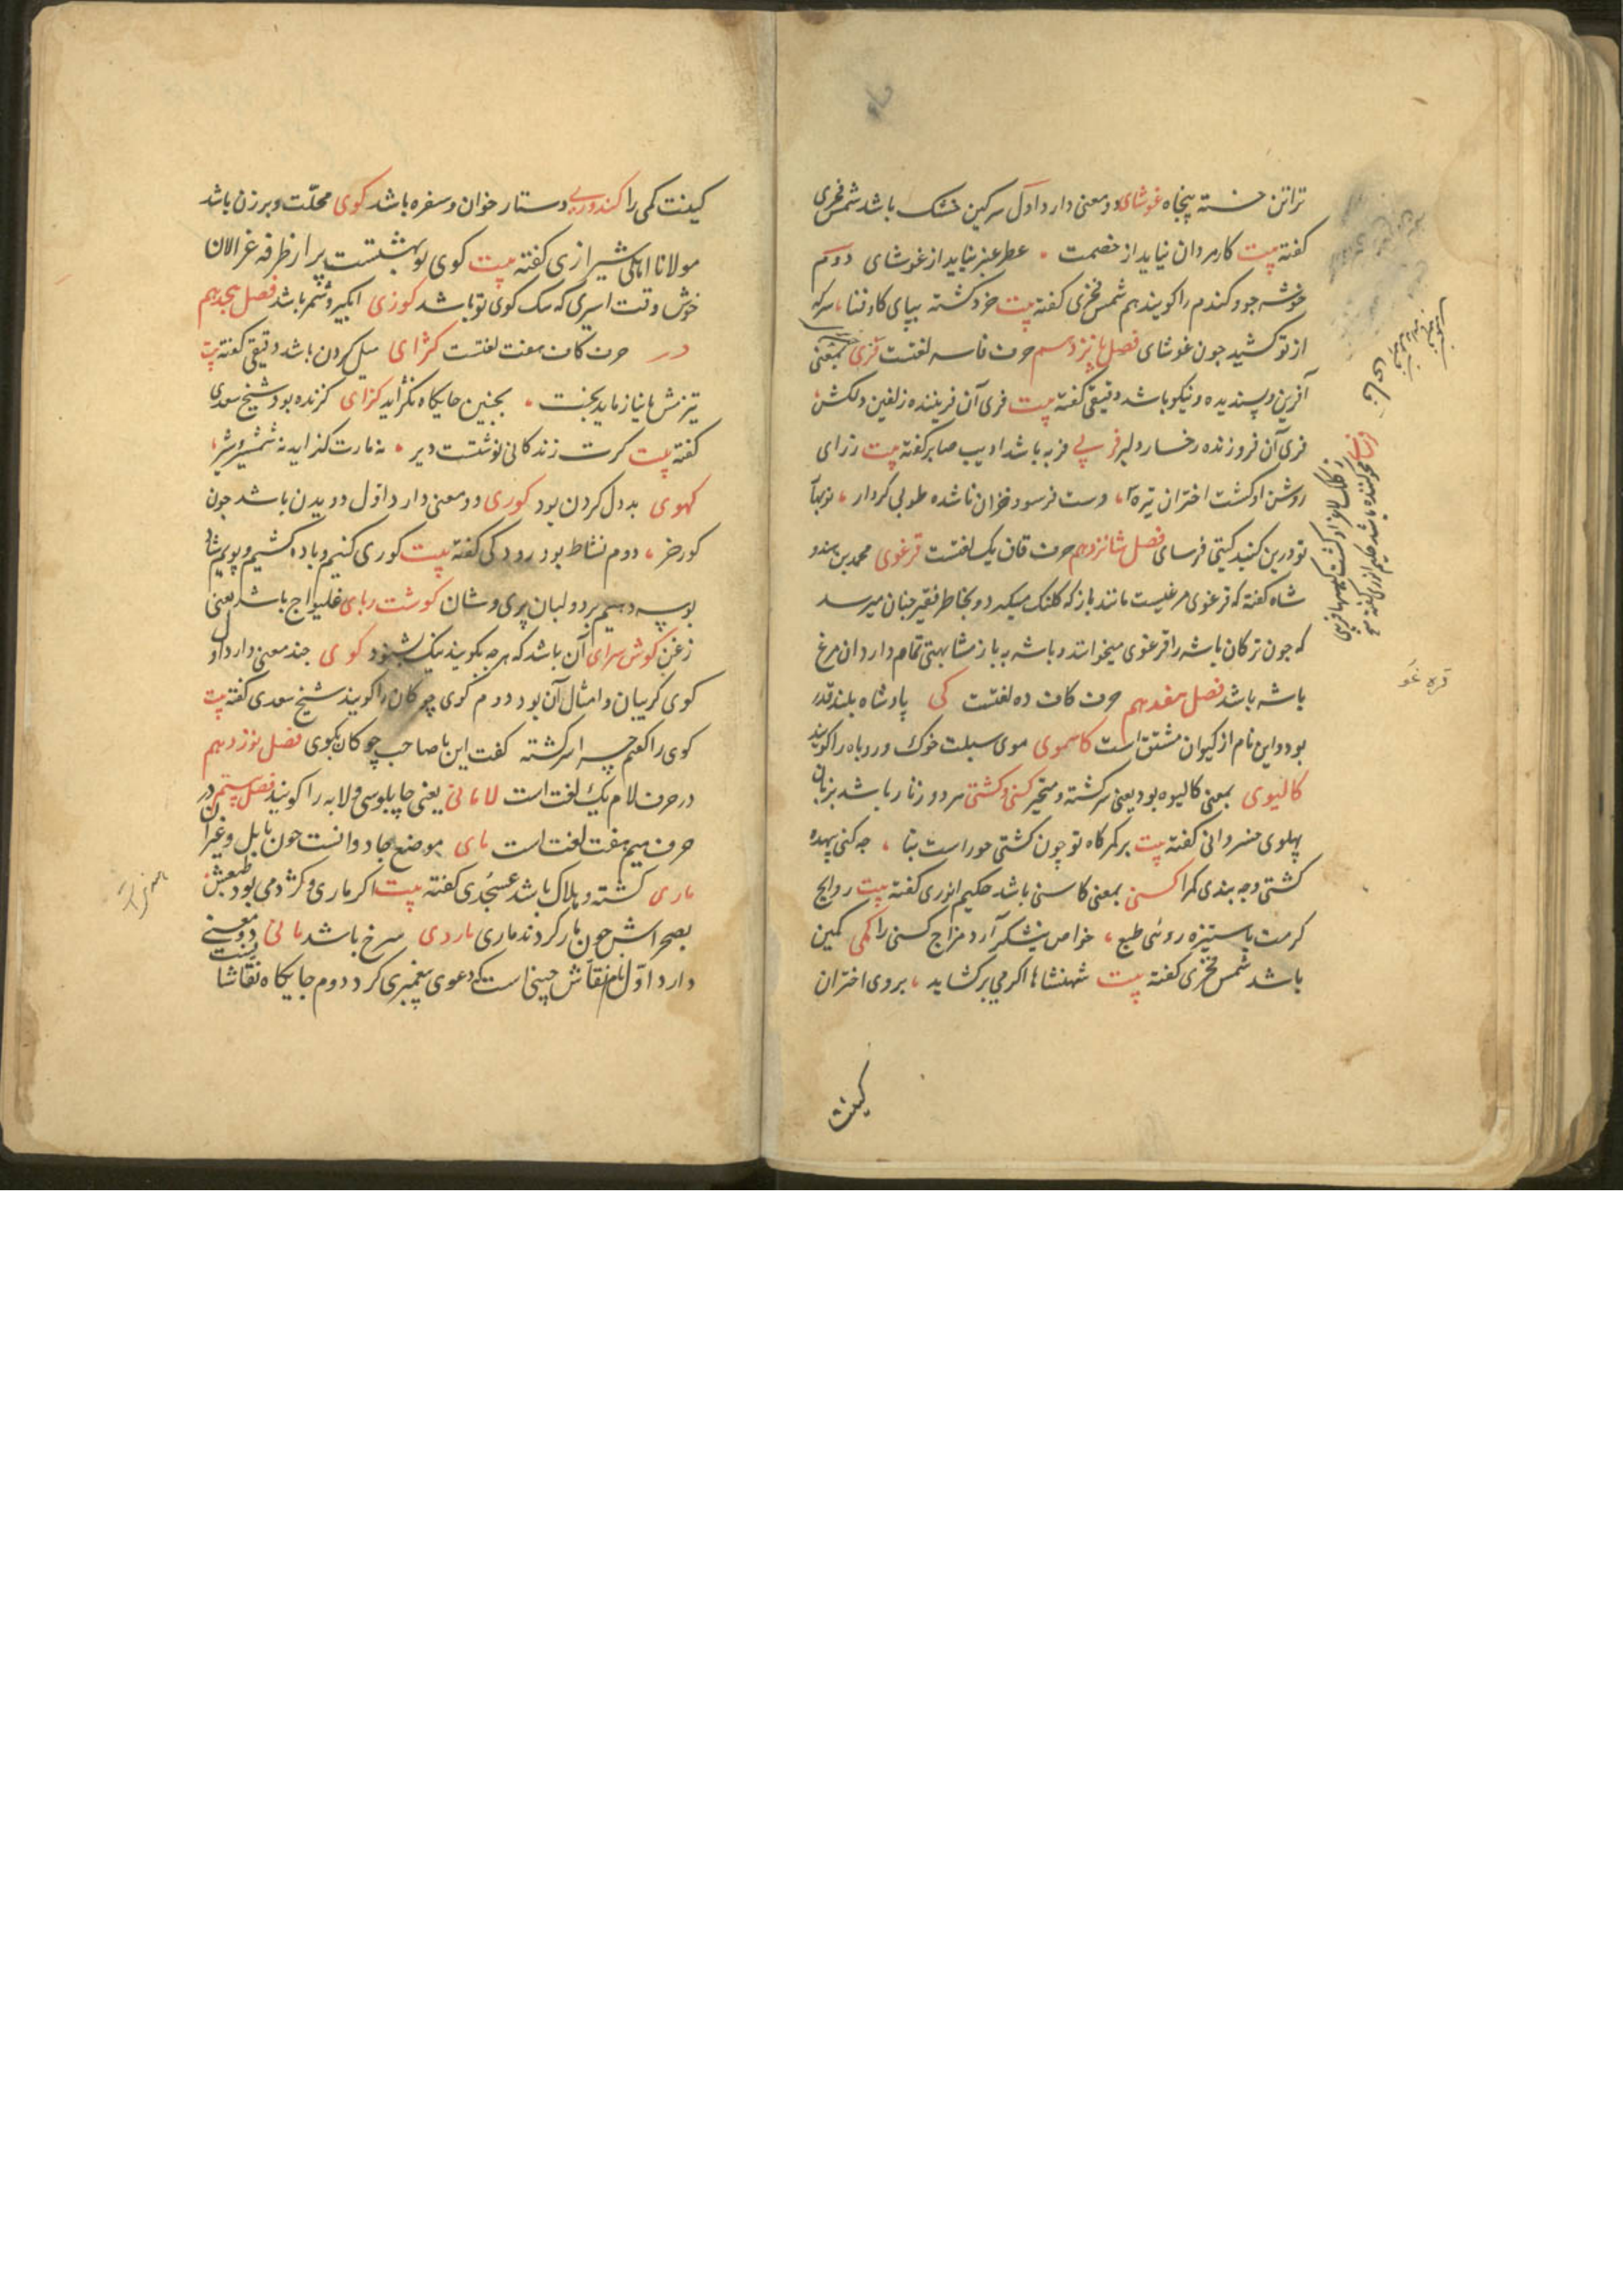 تراتن خسته پنجاه غوشای دو معنی دارد اول سرکین خشک باشد شمس فخری
کفته بیت کار مردان نیاید از خصمت عطر عنبر نیاید از غوشای دوم
خوشه جو و کندم را کویند هم شمس فخری کفته بیت خرد کشته بپای کاو فنا سر که
از تو کشید جون غوشای فصل پانزدهم حرف فا سه لغتست فری بمعنی
آفرین و پسندیده و نیکو باشد دقیقی کفته بیت فری آن فریبنده زلفین دلکش
فری آن فروزنده رخسار دلبر فربی فربه باشد ادیب صابر کفته بیت ز رای
روشن او کشت اختران تیره دست فرسود خزان ناشده طوبی کردار نوبها
تو درین کنبد کیتی فرسای فصل شانزدهم حرف قاف یک لغتست قرغوی محمد بن هندو
شاه کفته که قرغوی مرغیست مانند باز که کلنک میکیرد و بخاطر فقیر جنان میرسد
که جون ترکان باشه را قرغوی میخوانند و باشه بباز مشابهتی تمام دارد ان مرغ
باشه باشد فصل هفدهم حرف کاف ده لغتست کی پادشاه بلند قدر
بود و این نام از کیوان مشتق است کاسموی موی سبلت خوک و روباه را کویند
کالیوی بمعنی کالیوه بود یعنی سرکشته و متحیر کستی و کشتی هر دو زنار باشد بزبان
پهلوی خسروانی کفته بیت بر کمرکاه تو جون کشتی جوراست بتا چه کنی بیهده
کشتی و چه بندی کمرا کسنی بمعنی کاسنی باشد حکیم انوری کفته بیت روایح
کرمت با ستیزه روئی طبع خواص نیشکر آرد مزاج کسنی را کمی کمین
باشد شمس فخری کفته بیت شهنشاها اکر می برکشاید بروی اختران
کینت
قره غو
کینت کمی را کندوری دستار خوان و سفره باشد کوی محلت و برزن باشد
مولانا اهلی شیرازی کفته بیت کوی تو بهشتست پر از طرفه غزالان
خوش وقت اسیری که سک کوی تو باشد کوزی ابکیر و شمر باشد فصل هجدهم
در حرف کاف هفت لغتست کژای میل کردن باشد دقیقی کفته بیت
تیزهش تا نیازماید بخت بجنین جایکاه نکراید کزای کزنده بود شیخ سعدی
کفته بیت کرت زندکانی نوشتست دیر نه مارت کزاید نه شمشیر و شیر
کهوی بدول کردن بود کوری دو معنی دارد اول دویدن باشد جون
کورخر دوم نشاط بود رودکی کفته بیت کوری کنیم و باده کشیم و بویم شاد
بوسه دهیم بر دو لبان پری وشان کوشت ربای غلیواج باشد یعنی
زغن کوش سرای آن باشد که هرچه بکویند نیک بشنود کوی جند معنی دارد اول
کوی کریبان و امثال آن بود دوم کوی چوکان را کویند شیخ سعدی کفته بیت
کوی را کفتم چرا سرکشته کفت این با صاحب چوکان بکوی فصل نوزدهم
در حرف لام یک لغت است لامانی یعنی چاپلوسی و لابه را کویند فصل بیستم در
حرف میم هفت لغت است مای موضع جادوانست جون بابل و غیر آن
ماری کشته و هلاک باشد عسجدی کفته بیت اکر ماری و کژدمی بود طبعش
بصحراش جون مار کردند ماری ماردی سرخ باشد مانی دو معنی
دارد اول نام نقاش چینی است که دعوی پیغمبری کرد دوم جایکاه نقاشا